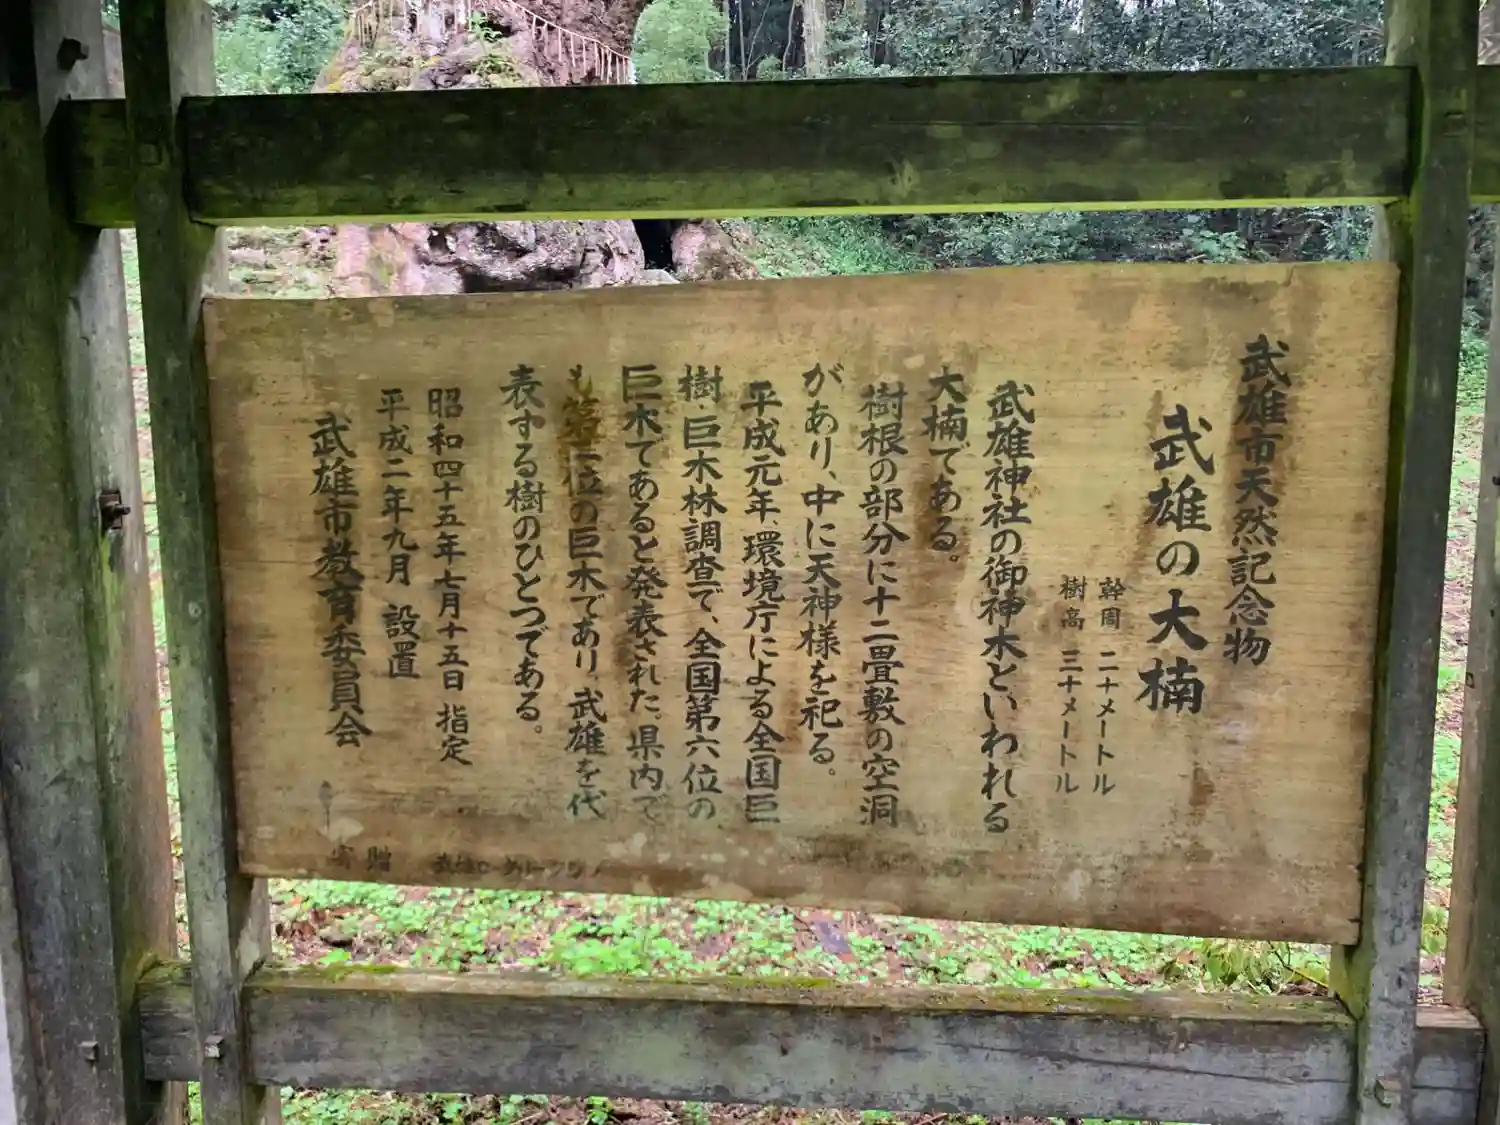 武雄市天然記念物
武雄の大楠
幹周 二十メートル
樹高 三十メートル
武雄神社の御神木といわれる
大楠である。
樹根の部分に十二畳敷の空洞
があり、中に天神様を祀る。
平成元年、環境庁による全国巨
樹・巨木林調査で、全国第六位の
巨木であると発表された。県内で
も第二位の巨木であり、武雄を代
表する樹のひとつである。
昭和四十五年七月十五日 指定
平成二年九月 設置
武雄市教育委員会
寄贈